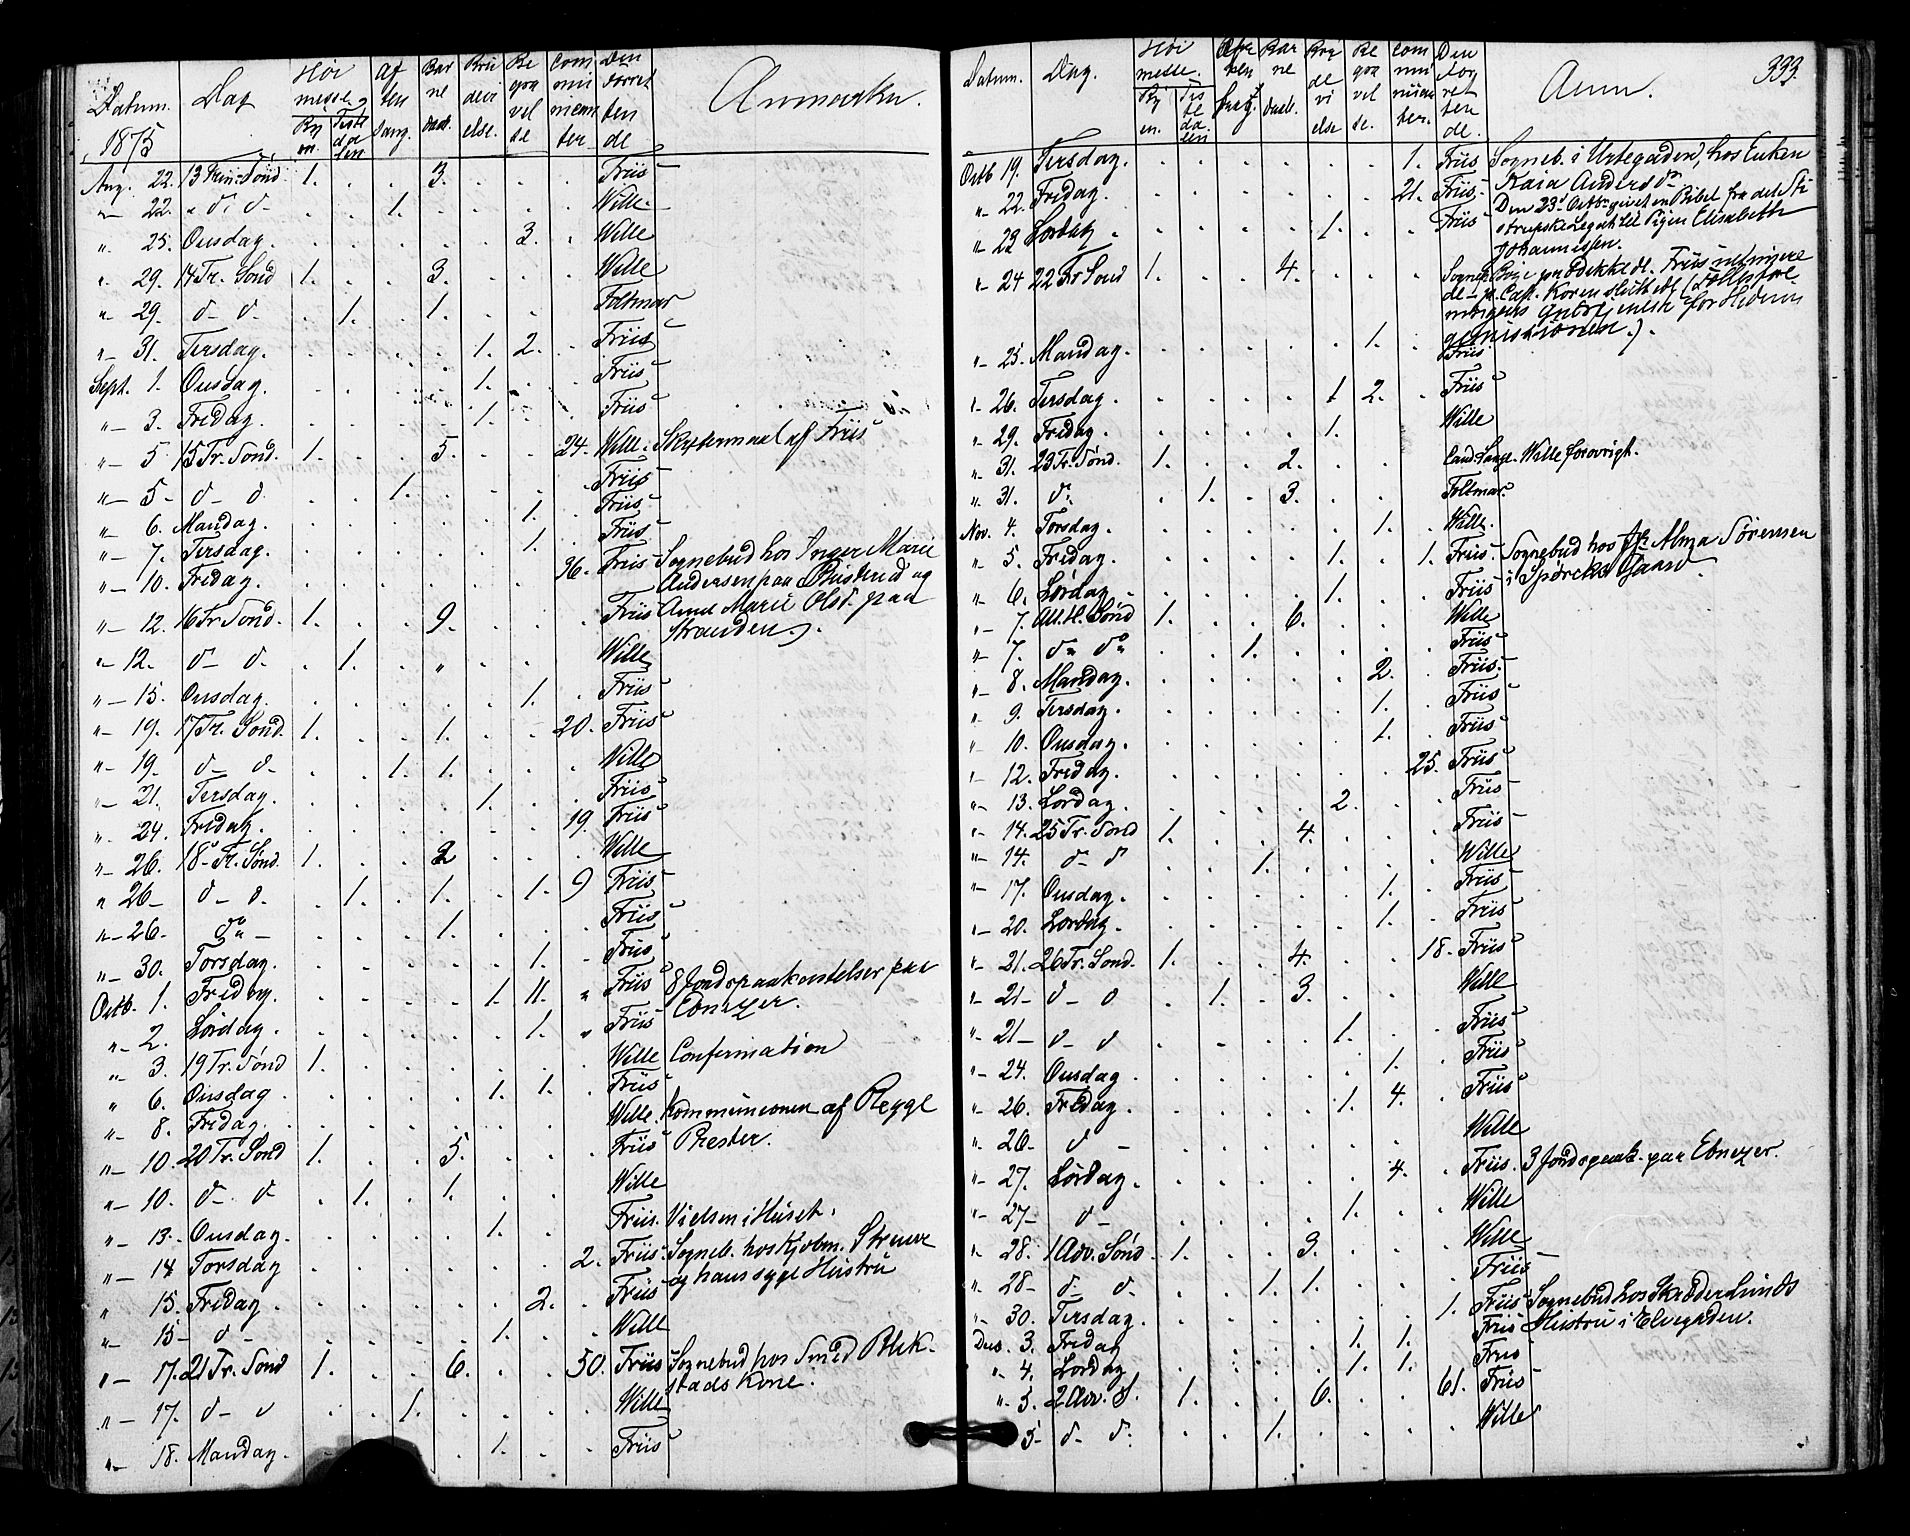 Datum. 1875 Dag Høi messe Byen. Festedalen Af ten sang. Bar ne daab. Bru devi else. Be gra vel se Com mu nican ter. Den forret ten de Anmærkn.
Aug. 22. 13 Trin: Sønd 1. . . 3. . . . Friis
"— 22. " d. d. . . 1. . . . . Wille.
". 25. Onsdag. . . . . . 3. . Wille
". 29. 14 Tr. Sønd 1. . . 3. . . . Wille
". 29. d. d. . 1. . 1. . . . Foltmar
"— 31. Tirsdag. . . . . 1. 2. . Friis
Sept. 1. Onsdag. . . . . 1. . . Friis
"— 3. Fredag. . . . . 1. . . Friis
"— 5 15 Tr. Sønd. 1. . . 5. . . 24. Wille. Skriftemaal af Friis
"— 5 — d — d. . . 1. . . . . Friis
"— 6. Mandag. . . . . . 1. . Friis
"— 7. Tirsdag. . . . . . 1. . Friis
"— 10. Fredag. . . . . . . 36. Friis Sognebud hos Inger Marie
Andersen paa og
"— 12. 16 Tr Sønd. 1. . . 9. . . . Friis Anne Marie Olsd. paa
Stranden.
"— 12. d — d. . 1. . " . . . Wille
"— 15. Onsdag. . . . . . 1. . Friis
"— 19. 17 Tr. Sønd. 1. . . 1. . . 20. Friis
"— 19. d — d. . . 1. 1. . . . Wille
"— 21. Tirsdag. . . . . 1. . . Friis
". 24. Fredag. . . . . . . 19. Friis
"— 26. 18 Tr. Sønd. 1. . . 2 . . . Wille
" 26 — d — d. . 1. . 1. . 1. 9 Friis
"— 26. d° — . . . 1. . . . Friis
"— 30. Torsdag. . . . . . 1. . Friis
Octb. 1. Fredag. . . . . 1. 11. " Friis 8 Jordspaakastelser paa
Ebnezer.
"— 2. Lørdag. . . . . . 1. " Friis
"— 3. 19 Tr. Sønd 1. . . . . . . Wille Confirmation
" 6. Onsdag . . . . 1. 1. . Friis
"— 8. Fredag. . . . . . . . Wille. Kommunionen af Rygge
Prester.
"— 10. 20 Tr. Sønd 1. . . 5. . . . Friis
"— 10. d — d. . 1. . 1. . . . Wille
"— 13. Onsdag. . . . . 1. . . Friis. Vielsen i Huset.
"— 14 Torsdag . . . . . . 2. Friis Sogneb. hos Kjøbm. Struwe
og hans syge Hustru
" 15. Fredag. . . . . . 2. . Friis
" 15 — d — . . . . 1. . . Wille
" — 17. 21 Tr. Sønd 1. . . 6. . . 50. Friis Sognebud hos Smed Blek-
stads Kone.
"— 17. d — d . . 1. . . . . Wille
"— 18. Mandag. . . . . 1. . . Friis
333.
Datum. Dag. Høi messe. By en. Fes te da len Afte sang. Bar ne daab. Bru de vi else Be gra vel se. Com mu nican ter. Den for ret ten de. Anm.
Octb 19. Tirsdag. . . . . . . 1. Friis Sogneb. i Urtegaden, hos Enken
Kaia Andersd
"— 22. Fredag. . . . . . . 21. Friis. Den 23d Octb. givet en Bibel fra det Sti
"— 23 Lørdag . . . . . 1. . . Friis strupske Legat til Pigen Elisabeth
Johannessen.
"— 24 22 Tr Sønd 1. . . 4. . . . Sognepr.
gemissionen.).
"— 25. Mandag. . . . . . 1. . Friis
"— 26. Tirsdag. . . . . 1 2. . Friis
"— 29. Fredag. . . . . 1. . . Wille
"— 31. 23 Tr. Sønd. 1. . . 2. . . . Cand. Lange. Wille forøvrigt.
". 31. d. . 1. . 3. . . . Foltmar.
Nov. 4. Torsdag. . . . . . 1. . Wille.
"— 5. Fredag. . . . . 1. . 1. Friis. Sognebud hos Alma Sørensen
i Spørcks Gaard.
"— 6. Lørdag . . . . . 1. . . Friis
"— 7. All. H. Sønd 1. . . 6. . . . Wille
"— 7. d" d" . . 1. . . . . Friis
"— 8. Mandag. . . . . . 2. . Friis.
"— 9. Tirsdag. . . . . . 1. . Friis
"— 10. Onsdag. . . . . . 1. . Friis
"— 12. Fredag. . . . . . . 25. Friis
"— 13. Lørdag. . . . . 2. . . Friis
"— 14. 25 Tr. Sønd 1. . . 4. . . . Friis
"— 14. d — d . . 1. . . . . Wille
"— 17. Onsdag. . . . . . 1. . Friis
"— 20. Lørdag. . . . . . 1. . Friis
"— 21. 26 Tr. Sønd. 1. . . 4. . . 18. Friis
"— 21 — d — d . 1. . 3. . . . Wille
"— 21 — d — d . . . . 1. . . Friis
"— 24. Onsdag . . . . . . 1. . Friis
"— 26. Fredag. . . . . 1. 4. . Friis
"— 26. d — . . . . . . . Wille
"— 27. Lørdag. . . . . . 4. . Friis. 3 Jordspaak. paa Ebnezer.
"— 27 — d — . . . . 1. . . Wille
"— 28. 1 Adv. Sønd. 1. . . 3. . . . Wille
"— 28 — d. d. . . 1. 1. . . . Friis
"— 30. Tirsdag. . . . . . . 1. Friis Sognebud hos Skrædder Lunds
Hustru i Elvegaden.
Dec. 3. Fredag . . . . 1. 1. . Friis
"— 4. Lørdag . . . . 1. 1. . Friis
"— 5. 2 Adv. S. 1. . . 6. . . 61. Friis
5 — d — d. . . 1. . . . . Wille